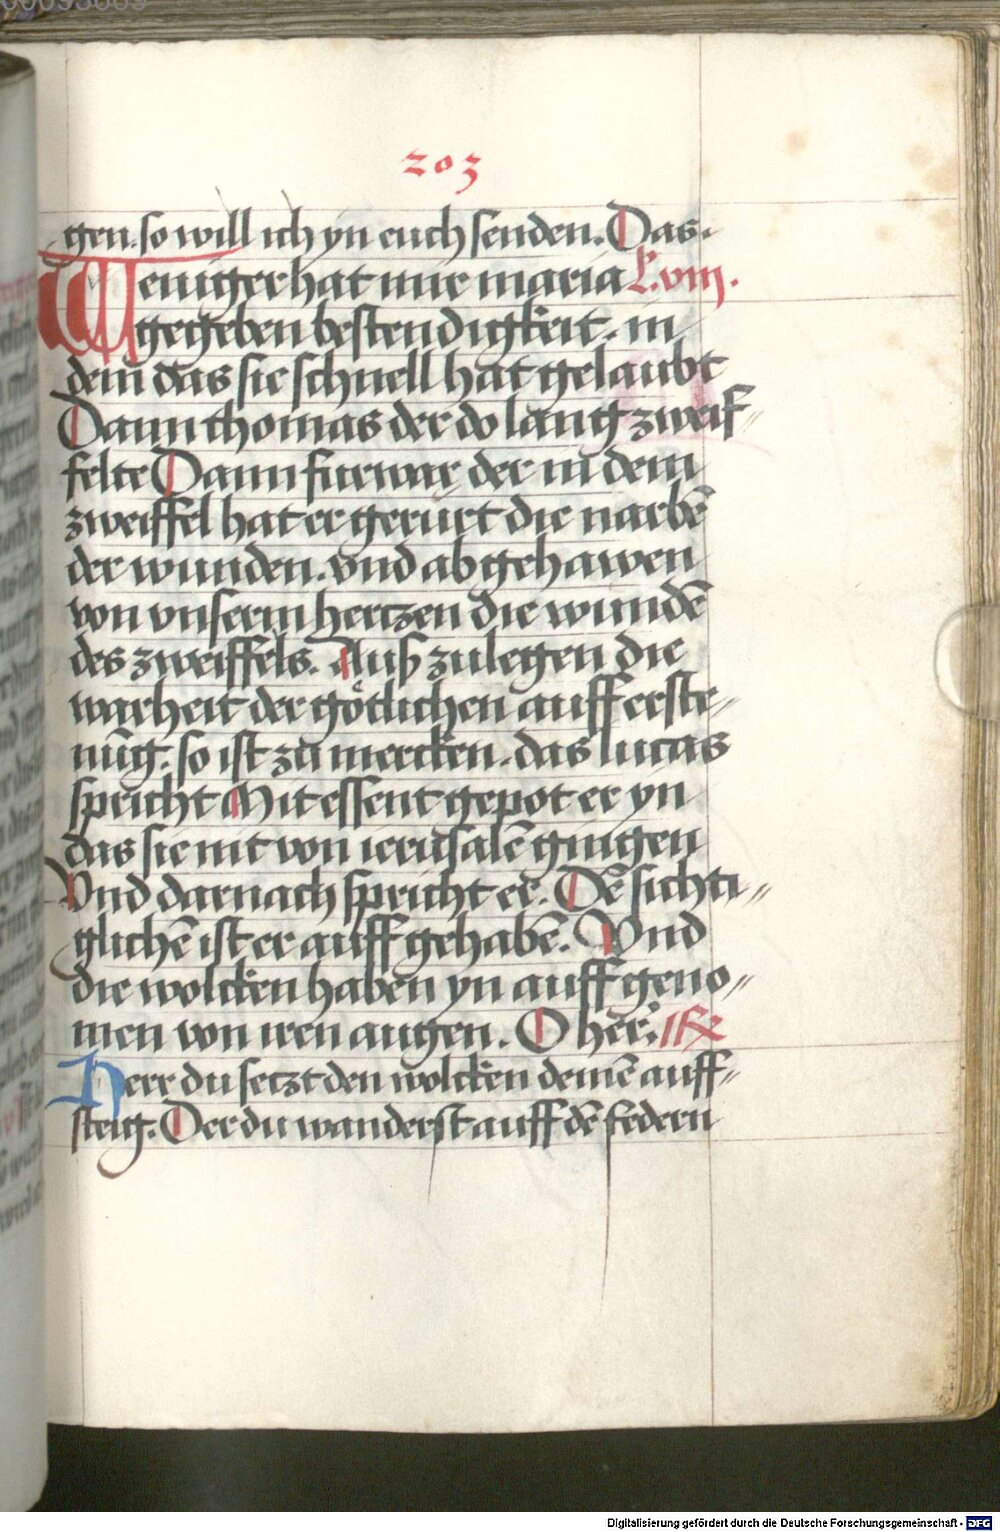 203
gen. so will ich yn euch senden. Das.
Weniger hat mir maria L. viij.
gegeben bestendigkeit. in
dem das sie schnell hat gelaubt
Dann thomas der do lang zweif〃
felte Dann furwar der in dem
zweiffel hat er gerürt die narbē
der wunden. vnd abgehawen
von vnserm hertzen die wundē
des zweiffels. Auß zulegen die
warheit der götlichen aufferste〃
nūg. so ist zu mercken. das lucas
spricht Mit essent gepot er yn
das sie nit von ierusalē gingen
Vnd darnach spricht er. Dē sichti〃
glichē ist er auff gehabē. Vnd
die wolcken haben yn auff geno〃
men von iren augen. O her: R
Herr du setzt den wolcken deinē auff〃
steig. Der du wanderst auff dē federn
Digitalisierung gefördert durch die Deutsche Forschungsgemeinschaft - DFG